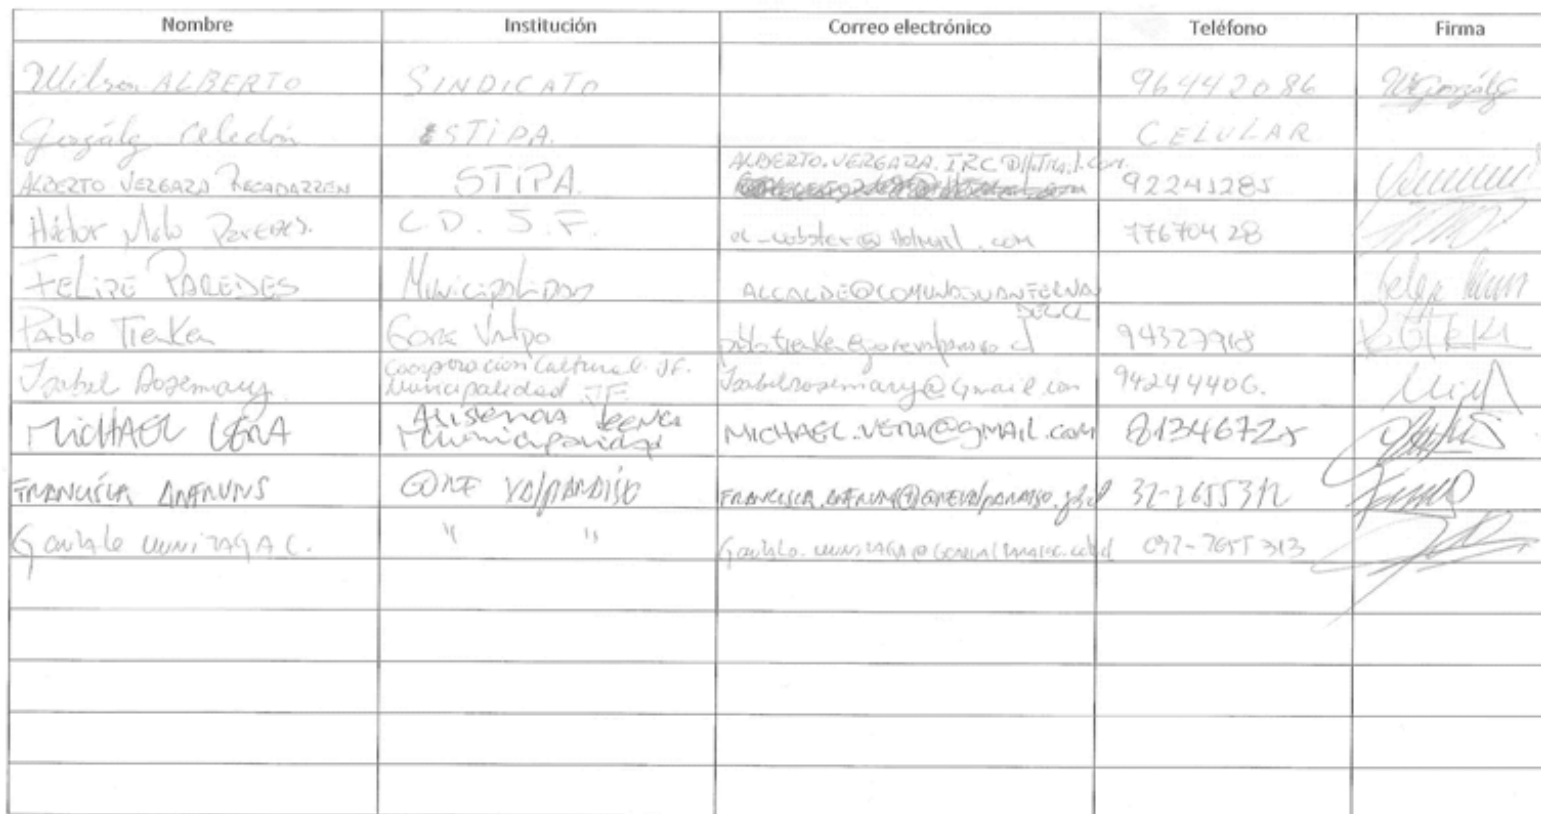 Nombre Institución Correo electrónico Teléfono Firma
Wilson ALBERTO SINDICATO 96442086
González Celedón STIPA. CELULAR
ALBERTO VERGARA RECABARREN STIPA. ALBERTO.VERGARA.IRC@HotMail.com. 92241285
Héctor Melo Paredes. C.D. J.F. el_webster@Hotmail.com 77670428
FELIPE PAREDES Municipalidad ALCALDE@COMUNAJUANFERNAN
DEZ.CL
Pablo Tienken Gore Valpo pablo.tienken@gorevalparaiso.cl 94327918
Isabel Rosemary Coorporacion Cultural JF. Isabelrosemary@Gmail.com 94244406.
Municipalidad JF
MICHAEL VERA Asistencia Tecnica MICHAEL.VERA@GMAIL.COM
Municipalidad
FRANCISCA ANFRUNS GORE VALPARAISO 32-2655312
Gonzalo MUNIZAGA C. " " 032-2655313